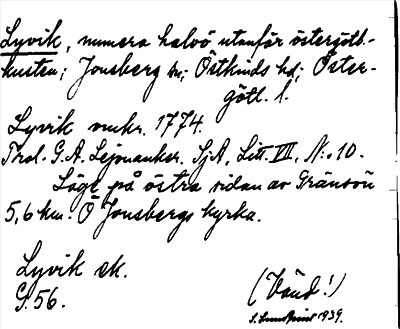 Lyvik, numera halvö utanför östergötl.-
kusten; Jonsberg sn; Östkinds hd; Öster-
götl. l.
Lyvik omkr. 1774.
Trol. G.A. Lejonanker. SjA, Litt. VII, N:o 10.
Läge på östra sidan av Gränsön
5,6 km. Ö Jonsbergs kyrka.
Lyvik ek.
G. 56.
(Vänd!)
1939.